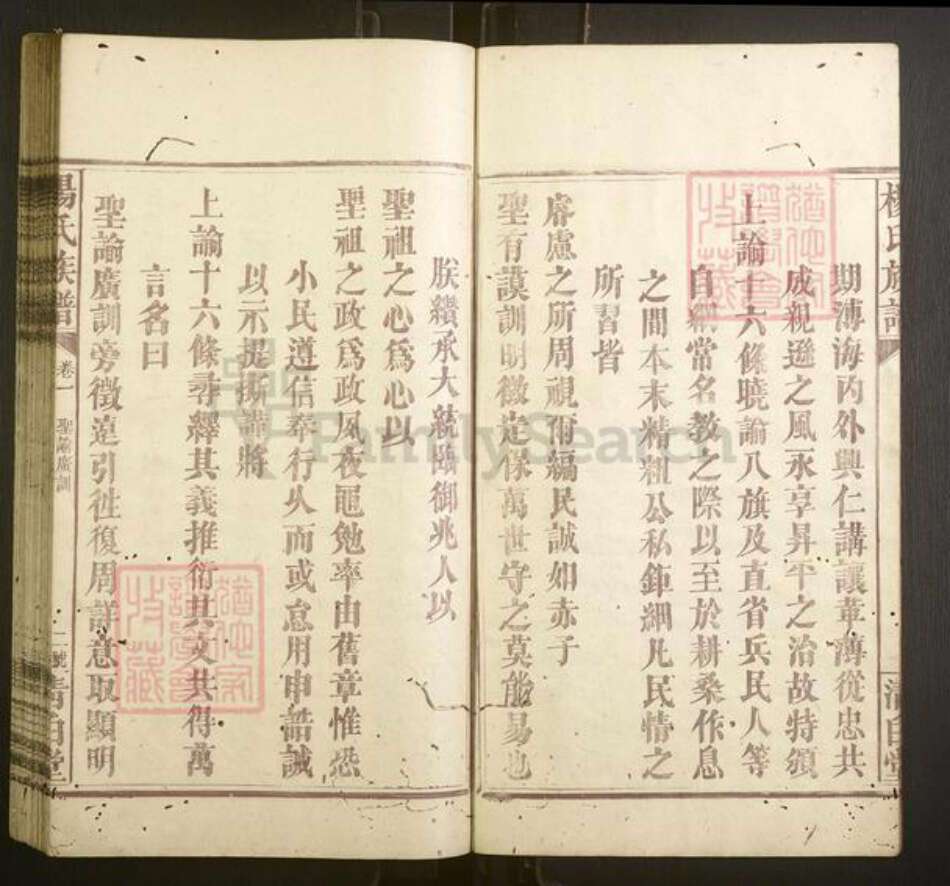 楊氏族譜
清白堂
期溥海內外興仁講讓革薄從忠共
成親遜之風永享昇平之治故特頒
上諭十六條曉諭八旗及直省兵民人等
自綱常名教之際以至於耕桑作息
之間本末精粗公私鉅細凡民情之
所習皆
睿慮之所周視爾編民誠如赤子
聖有謨訓明徵定保萬世守之莫能易也
朕纘承大統臨御兆人以
聖祖之心爲心以
聖祖之政爲政夙夜黽勉率由舊章惟恐
小民遵信奉行久而或怠用申誥誡
以示提撕謹將
上諭十六條尋繹其義推衍其文共得萬
言名曰
聖諭廣訓旁徵遠引往復周詳意取顯明
楊氏族譜
卷一
聖諭廣訓
二
清白堂
FamilySearch